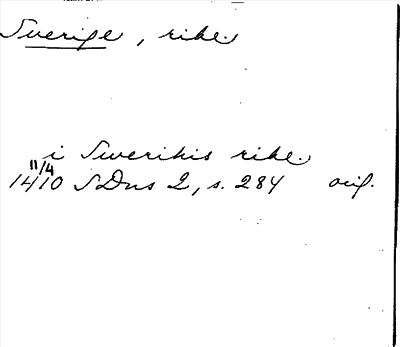 Sverige, rike
i Swerikis rike.
11/4
1410 SDns 2, s. 284 orig.